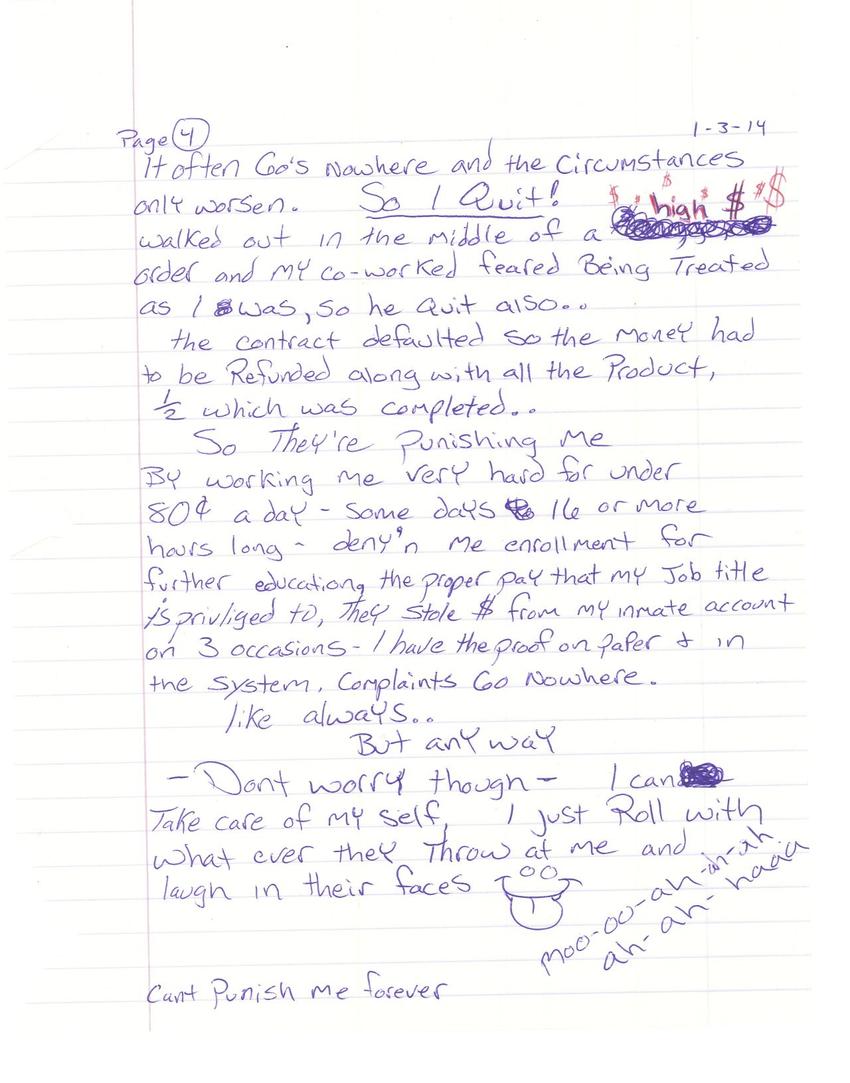 Page 4 1-3-14
It often Go's Nowhere and the Circumstances
only worsen. So I Quit! $ $ high $ $ $ $
walked out in the middle of a
order and my co-worked feared Being Treated
as I was, so he Quit also..
the contract defaulted so the money had
to be Refunded along with all the Product,
½ which was completed..
So They're Punishing Me
By working me very hard for under
80¢ a day - some days 16 or more
hours long - deny'n me enrollment for
further educationg the proper pay that my Job title
is privliged to, They stole $ from my inmate account
on 3 occasions - I have the proof on paper & in
the system. Complaints Go Nowhere.
like always..
But any way
- Dont worry though - I can
Take care of my self, I just Roll with
what ever they Throw at me and
laugh in their faces
moo-oo-ah-ah-ah
ah-ah-haaa
Cant Punish me forever